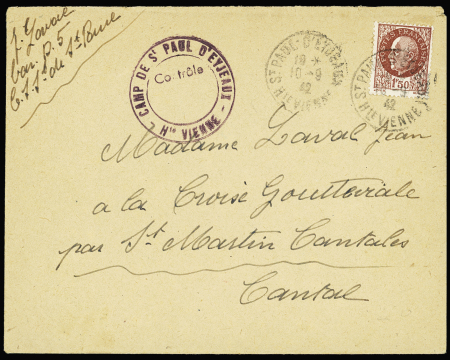 J. Laval
bar. D. 5
CAMP DE ST PAUL D'EYJEAUX
Contrôle
Hte VIENNE
ST PAUL D'EYJEAUX
18 -
10 - 9
42
HTE VIENNE
POSTES FRANÇAISES
1F50
ST PAUL D'EYJEAUX
42
HTE VIENNE
Madame Laval Jean
a la Croix Gouttevialle
par St Martin Cantales
Cantal